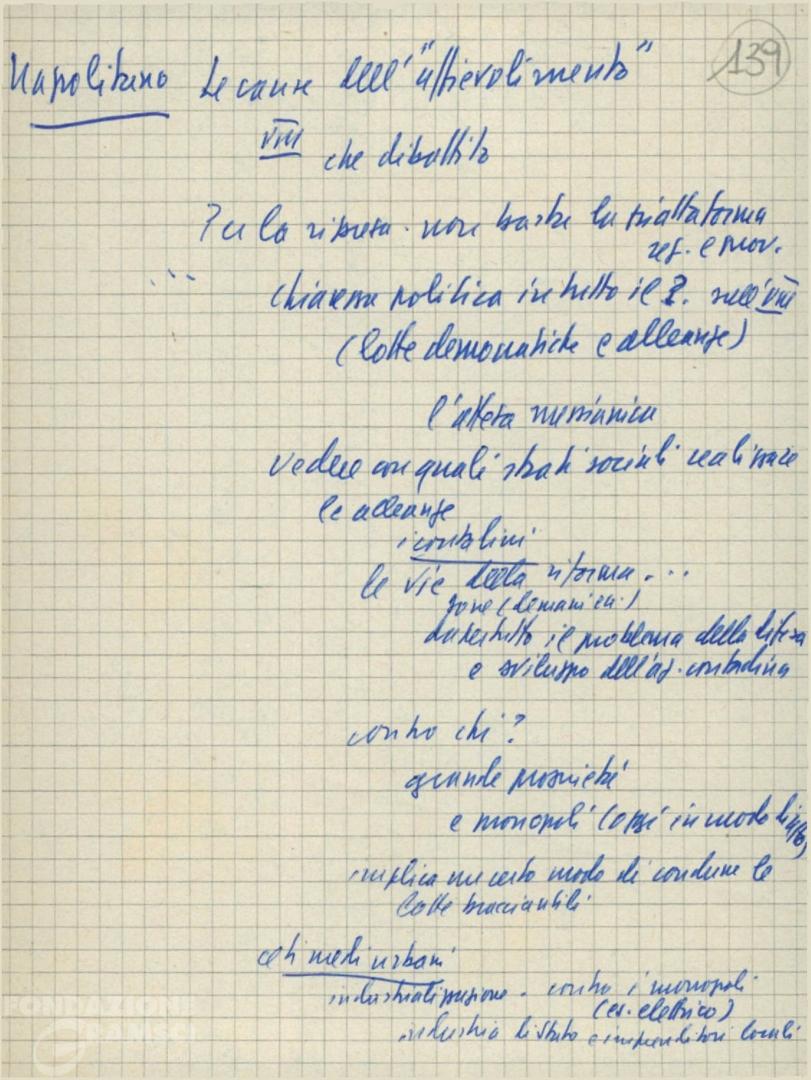 139
Napolitano Le cause dell'"affievolimento"
VIII che dibattito
Per la ripresa. non basta la piattaforma
reg. e prov.
chiarezza politica in tutto il P. sull'VIII
(lotte democratiche e alleanze)
l'attesa messianica
vedere con quali strati sociali realizzare
le alleanze
i contadini
le vie della riforma...
zone (demani ecc.)
dappertutto il problema della difesa
e sviluppo dell'az. contadina
contro chi?
grande proprietà
e monopoli (oggi in modo
implica un certo modo di condurre le
lotte bracciantili
ceti medi urbani
industrializzazione. contro i monopoli
(es. elettrico)
industria di Stato e imprenditori locali
FONDAZIONE
GRAMSCI